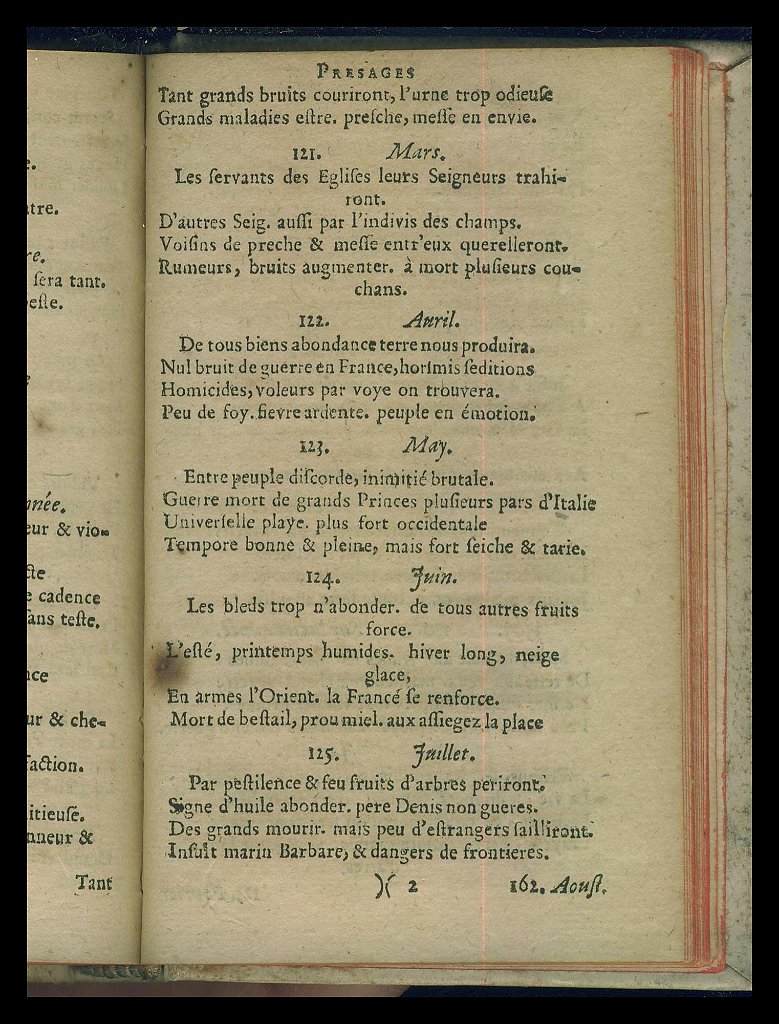 e.
tre.
re.
sera tant.
eſte.
nnée.
eur & vio-
cte
e cadence
ans teſte.
nce
ur & che-
faction.
itieuſe.
nneur &
Tant
PRESAGES
Tant grands bruits couriront, l'urne trop odieuſe
Grands maladies eſtre. preſche, meſſe en envie.
121. Mars.
Les ſervants des Egliſes leurs Seigneurs trahi-
ront.
D'autres Seig. auſſi par l'indivis des champs.
Voiſins de preche & meſſe entr'eux querelleront.
Rumeurs, bruits augmenter. à mort pluſieurs cou-
chans.
122. Auril.
De tous biens abondance terre nous produira.
Nul bruit de guerre en France, horſmis ſeditions
Homicides, voleurs par voye on trouvera.
Peu de foy. fievre ardente. peuple en émotion.
123. May.
Entre peuple diſcorde, inimitié brutale.
Guerre mort de grands Princes pluſieurs pars d'Italie
Univerſelle playe. plus fort occidentale
Tempore bonne & pleine, mais fort ſeiche & tarie.
124. Juin.
Les bleds trop n'abonder. de tous autres fruits
force.
L'eſté, printemps humides. hiver long, neige
glace,
En armes l'Orient. la Francé ſe renforce.
Mort de beſtail, prou miel. aux aſſiegez la place
125. Juillet.
Par peſtilence & feu fruits d'arbres periront.
Signe d'huile abonder. pere Denis non gueres.
Des grands mourir. mais peu d'eſtrangers ſailliront.
Inſult marin Barbare, & dangers de frontieres.
)( 2 162. Aouſt.